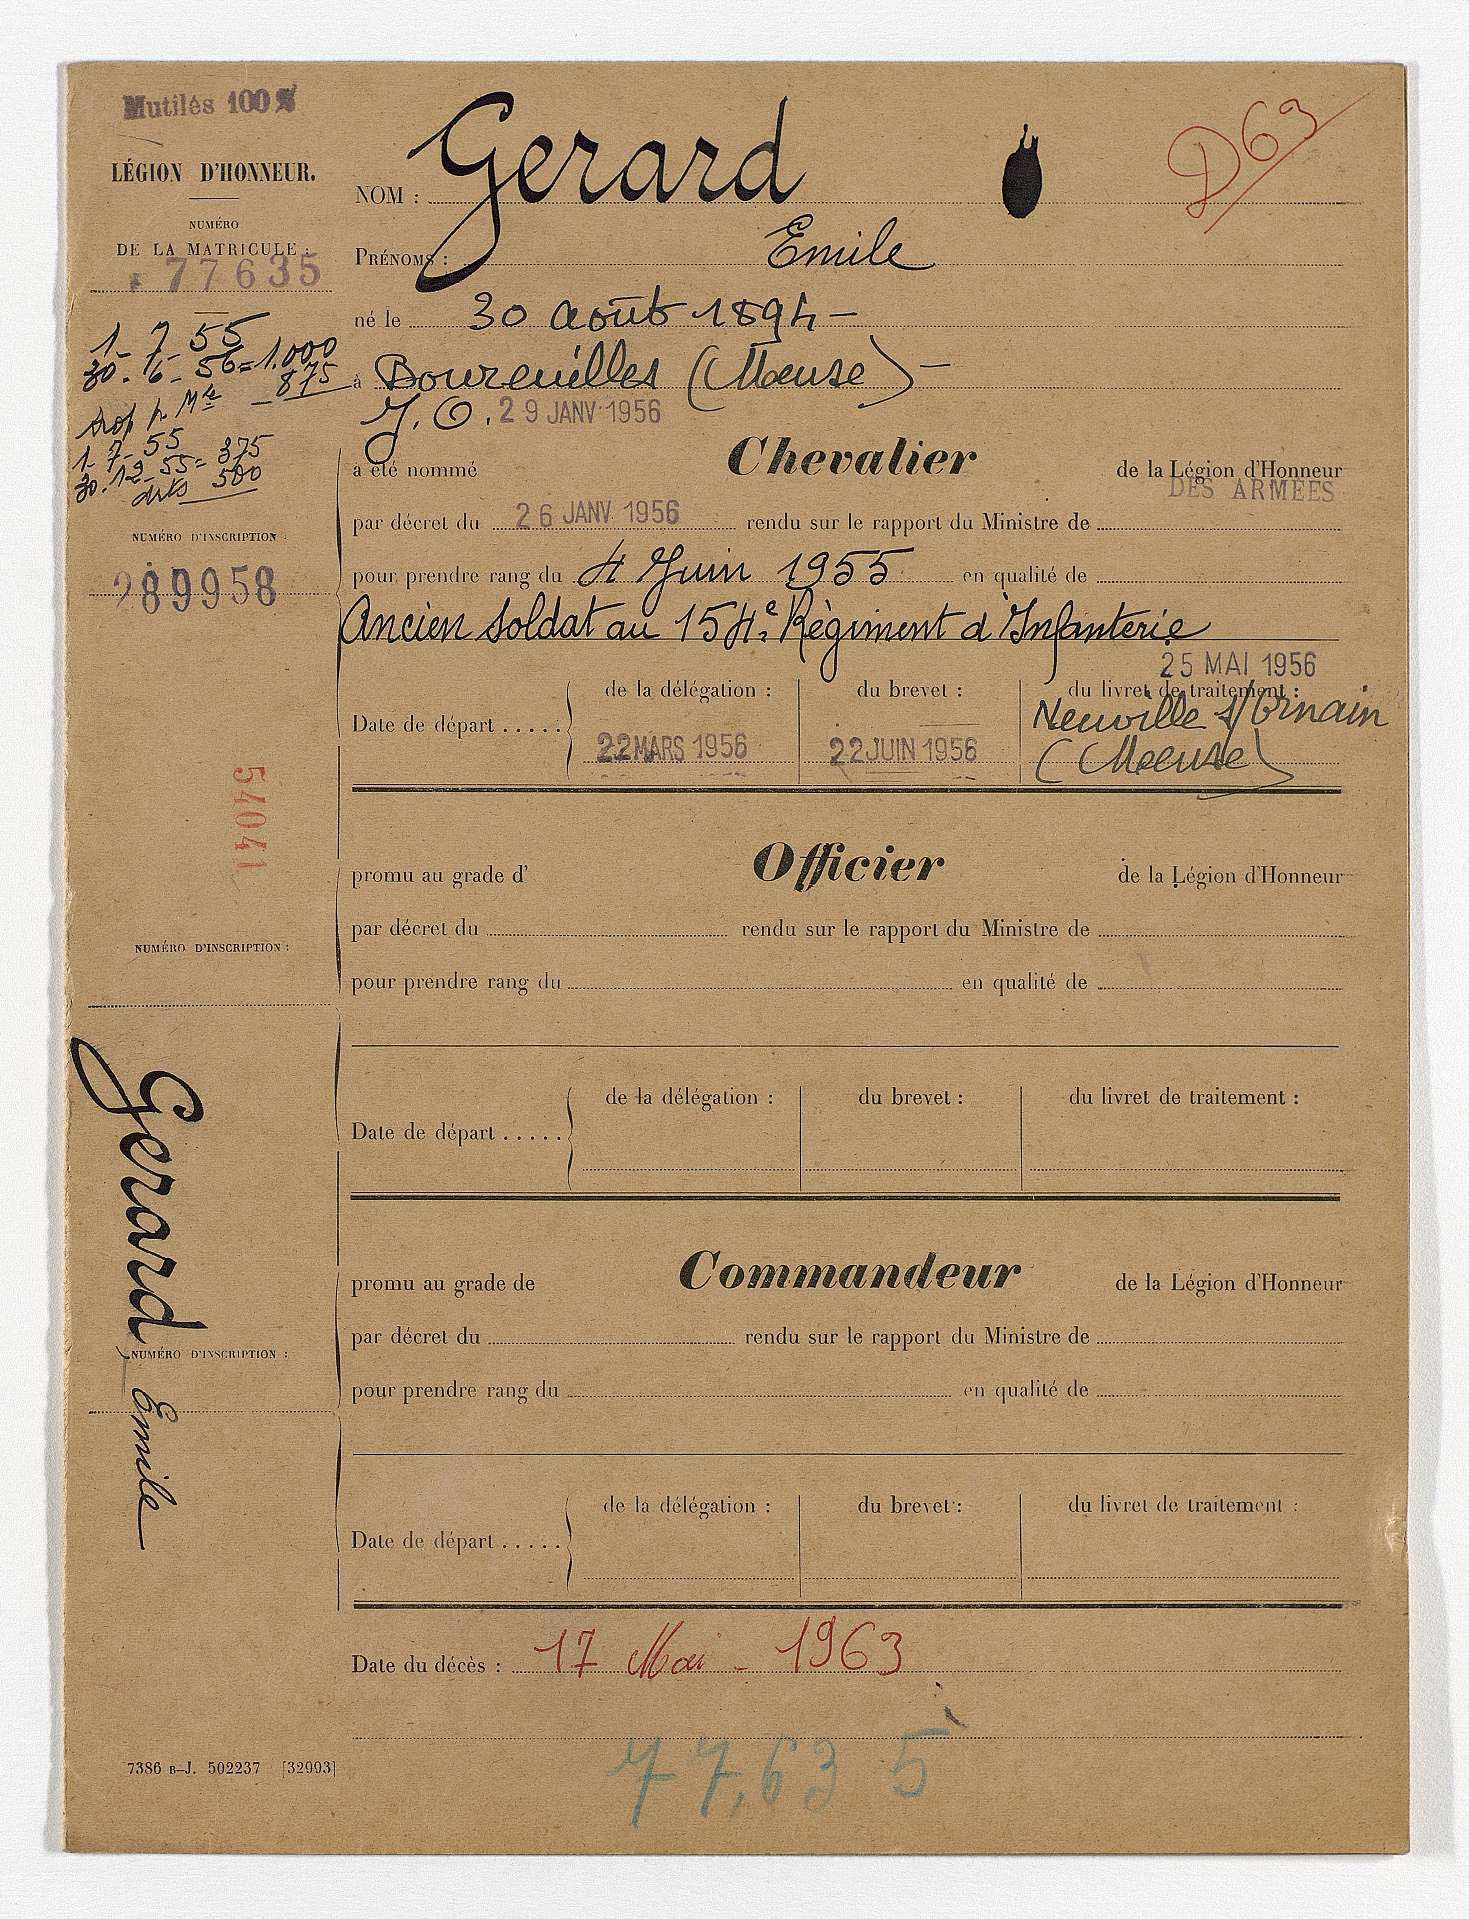 Mutilés 100%
LÉGION D'HONNEUR.
NUMÉRO
DE LA MATRICULE :
77635
1-7-55
30-6-56=1.000
trop p. Mle - 875
1-7-55
30.12-55= 375
dits 500
NUMÉRO D'INSCRIPTION :
289958
54041
NUMÉRO D'INSCRIPTION :
Gerard Emile
NUMÉRO D'INSCRIPTION :
7386 B–J. 502237 [32003]
D63
NOM : Gerard
PRÉNOMS : Emile
né le 30 août 1894 –
à Boureuilles (Meuse) –
J.O. 29 JANV 1956
a été nommé Chevalier de la Légion d'Honneur
DES ARMÉES
par décret du 26 JANV 1956 rendu sur le rapport du Ministre de
pour prendre rang du 4 Juin 1955 en qualité de
Ancien Soldat au 154e Régiment d'Infanterie
25 MAI 1956
de la délégation : du brevet : du livret de traitement :
Neuville s/Ornain
Date de départ ..... 22 MARS 1956 22 JUIN 1956 (Meuse)
promu au grade d' Officier de la Légion d'Honneur
par décret du rendu sur le rapport du Ministre de
pour prendre rang du en qualité de
de la délégation : du brevet : du livret de traitement :
Date de départ .....
promu au grade de Commandeur de la Légion d'Honneur
par décret du rendu sur le rapport du Ministre de
pour prendre rang du en qualité de
de la délégation : du brevet : du livret de traitement :
Date de départ .....
Date du décès : 17 Mai - 1963
77,635